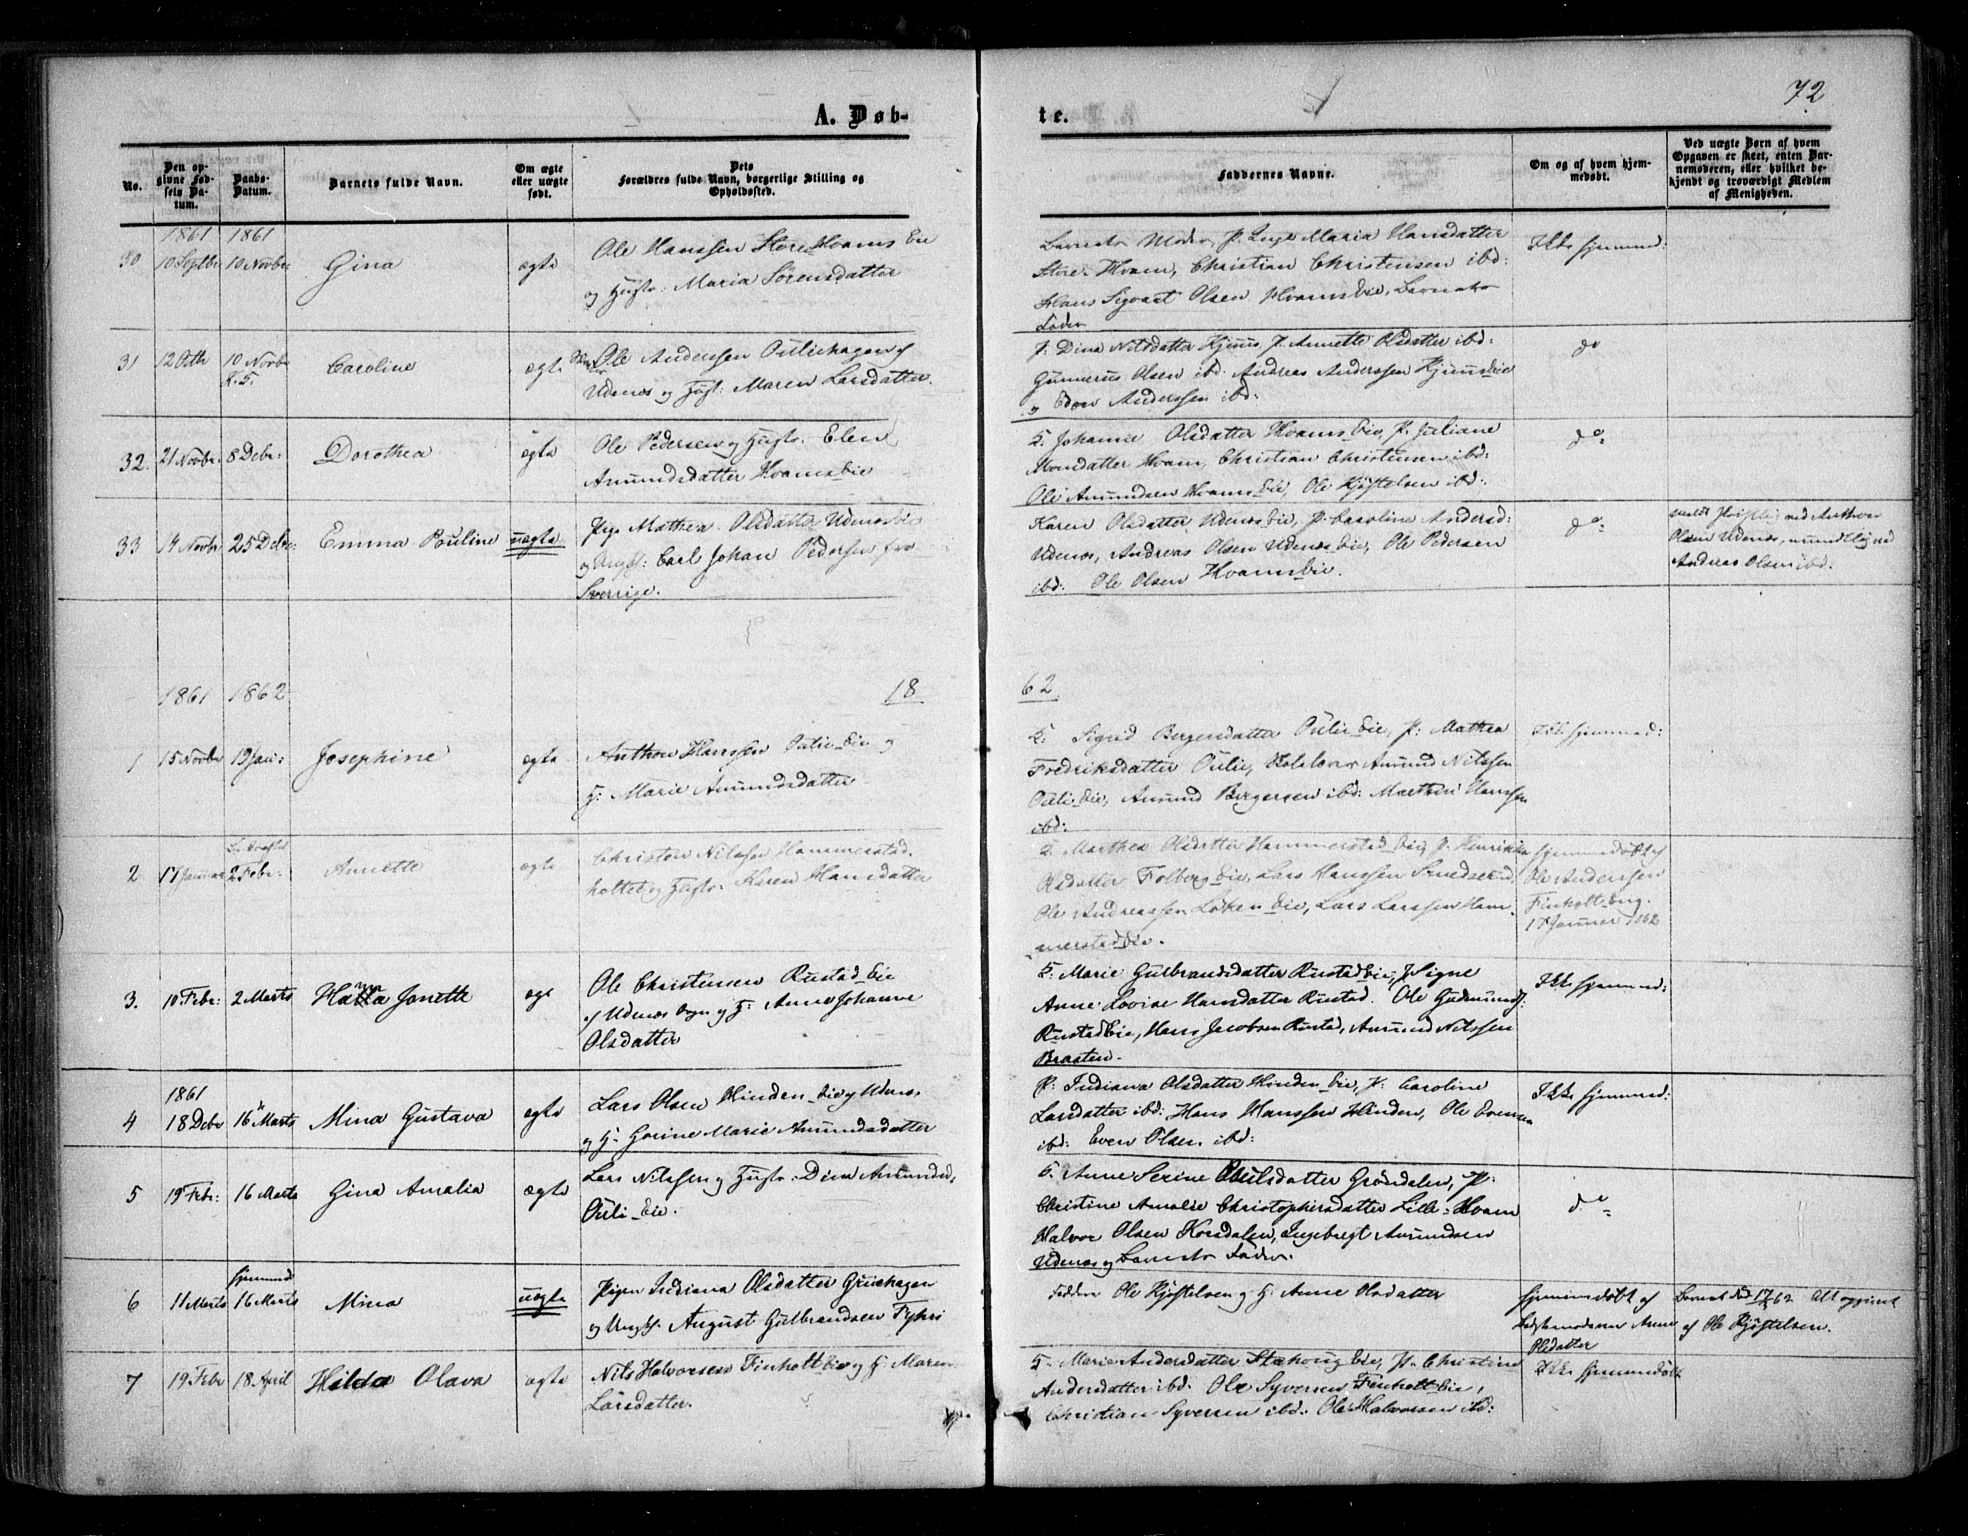 72
A. Døb-
te.
No.
Den op-
givne Fød-
sels Da-
tum.
Daabs-
Datum.
Barnets fulde Navn.
Om ægte
eller uægte
født.
Dets
Forældres fulde Navn, borgerlige Stilling og
Opholdssted.
Faddernes Navne.
Om og af hvem hjem-
medøbt.
Ved uægte Børn af hvem
Opgaven er skeet, enten Bar-
nemoderen, eller hvilket be-
kjendt og troværdigt Medlem
af Menigheden.
1861 1861
30 10 Septbr 10 Novbr Gina ægte
Ole Hanssen Store Hvams Eie
og Hustr: Maria Sørensdatter
Barnets Moder, P. Inge Maria Hansdatter
Store-Hvam, Christian Christensen ibd:
Hans Sigvart Olsen Hvamseie, Barnets
Fader
Ikke hjemmed:
31 12 Octb 10 Novbr
K. S.
Caroline ægte
Ole Andersen Ouliehagen af
Udenes og Hust: Maren Larsdatter.
P. Dina Nilsdatter Kjuus, P. Annette Olsdatter ibd:
Gunnerus Olsen ibd: Andreas Anderssen Kjuuseie
og Anderssen ibd:
do
32. 21 Novbr: 8 Debr: Dorothea ægte
Ole Pedersen og Hustr: Elen
Amundsdatter Hvamseie
G. Johanne Olsdatter Hvamseie, P. Juliane
Hvam, Christian Christensen ibd:
Ole Amundsen Hvamseie, Ole Kjøstelsen ibd:
do
33 14 Novbr 25 Debr Emma Pouline uægte
Pige Mathea Olsdatter Udeneseie
og Ungk: Carl Johan Pedersen fra
Sverrige.
Karen Olsdatter Udeneseie, P. Caroline Andersd:
Udenes, Andreas Olsen Udenes Eie, Ole Pedersen
ibd: Ole Olsen Hvamseie.
do
Anthon
Olsen Udenes, mundtlig ved
Andreas Olsen ibd.
1861 1862
18
62
1 15 Novbr 19 Jan: Josephine ægte
Anthon Hanssen Oulie Eie og
H: Marie Amundsdatter
G: Sigrid Bergersdatter Oulie Eie, P: Mathea
Fredriksdatter Oulie, Amund Nilssen
Oulie Eie, Amund Bergersen ibd: Hanssen
ibd:
Ikke hjemmed:
2 17 Januar 2 Febr: Annette ægte
Christen Nilssen Hammerstad
holtet og Hustr: Karen Hansdatter
G. Marthea Olsdatter Hammerstad Eie, P. Henrikke
Olsdatter Folberg Eie, Lars Hanssen Smedsrud,
Ole Andreassen Løken Eie, Lars Larssen Ham-
merstadeie.
hjemmedøbt af
Ole Anderssen
Finholt
17 Januar 1862
3. 10 Febr: 2 Marts Hanna Jonette ægt
Ole Christensen Rustad Eie
af Udenes Sogn og H: Anne Johanne
Olsdatter
G: Marie Gulbrandsdatter Rustadeie, P. Signe
Anne Lovise Hansdatter Rustad. Ole Gudmunds:
Rustadeie, Hans Jacobsen Rustad, Amund Nilssen
Braaten.
Ikke hjemmed:
1861
4 18 Debr 16 Marts Mina Gustava ægte
Lars Olsen Hinden Eie af Udenes
og H: Gorine Marie Amundsdatter
P: Indiana Olsdatter Hinden Eie, P. Caroline
Larsdatter ibd: Hans Hanssen Hinden, Ole Evensen
ibd: Even Olsen ibd:
Ikke hjemmed:
5 19 Febr: 16 Marts Gina Amalia ægte
Lars Nilssen og Hustr: Dina Amundsd,
Ouli Eie.
G. Anne Serine Grøndalen, P:
Christine Amalie Christophersdatter Lille-Hvam
Halvor Olsen Korsdalen, Ingebregt Amundsen
Udenes og Barnets Fader.
do
6 11 Marts hjemmed
16 Marts Mina uægte
Pigen Indiana Olsdatter Gruehagen
og Ungk. August Gulbrandsen Fykri
Faddere Ole Kjøstelsen og H: Anne Olsdatter
hjemmedøbt af
Jordemoderen Anne
Olsdatter
Barnet død 17/3 62 Alt opgivet
af Ole Kjøstelsen.
7 19 Febr 18 April Hilda Olava ægte
Nils Halvorsen Finholteie og H: Maren
Larsdatter.
G. Marie Andersdatter Eie, P. Christine
Andersdatter ibd. Ole Syversen Finholt Eie,
Christian Syversen ibd. Ole Halvorsen ibd:
Ikke hjemmedøbt